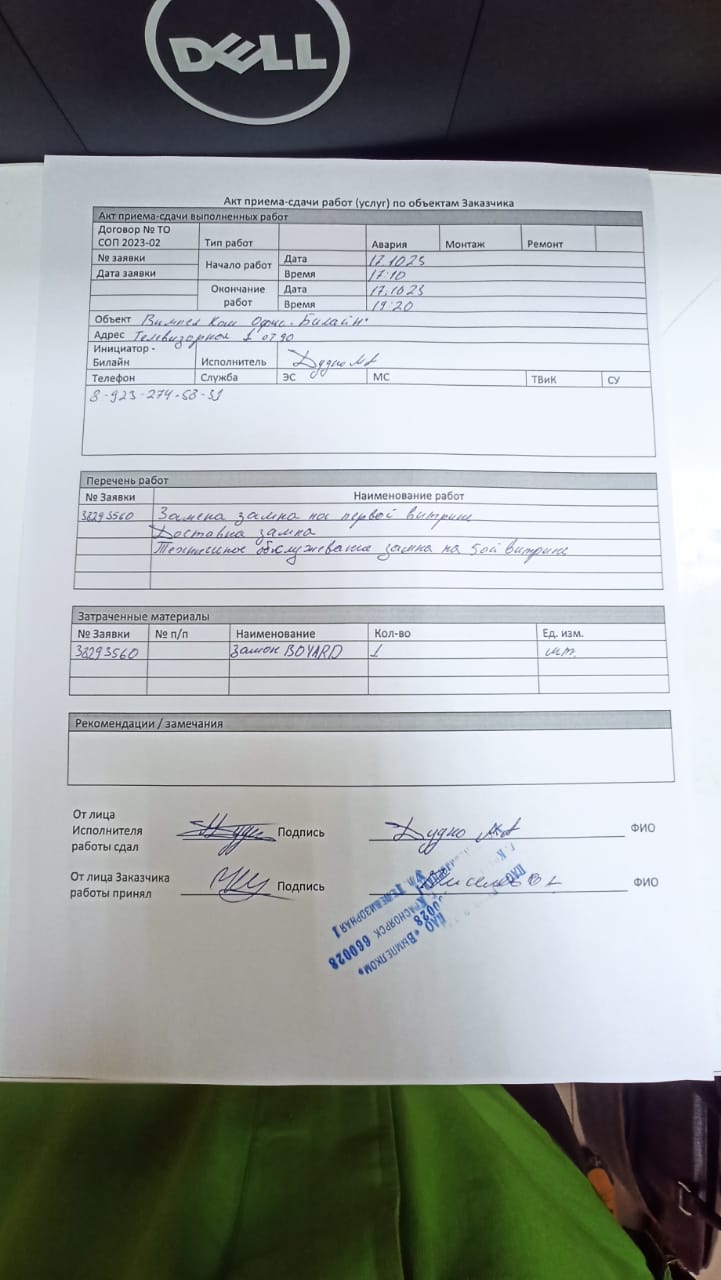 DELL
Акт приема-сдачи работ (услуг) по объектам Заказчика
Акт приема-сдачи выполненных работ
Договор № ТО СОП 2023-02 Тип работ Авария Монтаж Ремонт
№ заявки Начало работ Дата 17.10 23
Дата заявки Время 17:10
Окончание работ Дата 17.10 23
Время 19:20
Объект Вымпел Ком Офис. Билайн.
Адрес Телевизорная 1
Инициатор - Билайн Исполнитель Дудко
Телефон Служба ЭС МС ТВиК СУ
8-923-274-53-31
Перечень работ
№ Заявки Наименование работ
38293560 Замена замка на первой витрине
Доставка замка
обслуживание замка на 5ой витрине
Затраченные материалы
№ Заявки № п/п Наименование Кол-во Ед. изм.
38293560 Замок BOYARD 1 шт.
Рекомендации / замечания
От лица Исполнителя работы сдал Подпись Дудко ФИО
От лица Заказчика работы принял Подпись ФИО
ул. Телевизорная 1
г. Красноярск 660028
ПАО «Вымпелком»